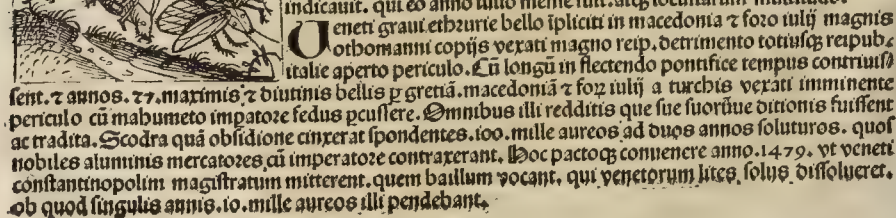 indicauit. qui eo anno
Ueneti graui ethrurie bello īpliciti in macedonia ⁊ foro iulij magnis
othomanni copijs vexati magno reip. detrimento totiusqꝫ reipub.
italie aperto periculo. Cū longū in flectendo pontifice tempus contriuis⸗
sent. ⁊ annos. 27. maximis ⁊ diutinis bellis ꝑ gretiā. macedoniā ⁊ foꝝ iulij a turchis vexati imminente
periculo cū mahumeto impatore fedus ꝑcussere. Omnibus illi redditis que sue suorūue ditionis fuissent
ac tradita. Scodra quā obsidione cinxerat spondentes. 100. mille aureos ad duos annos soluturos. quos
nobiles aluminis mercatores cū imperatore contraxerant. Hoc pactoqꝫ conuenere anno. 1479. vt veneti
constantinopolim magistratum mitterent. quem baillum vocant. qui venetorum lites solus dissolueret.
ob quod singulis annis. 10. mille aureos illi pendebant.